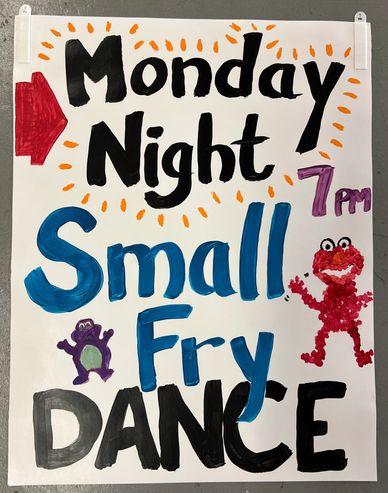 Monday
Night
7 PM
Small
Fry
DANCE